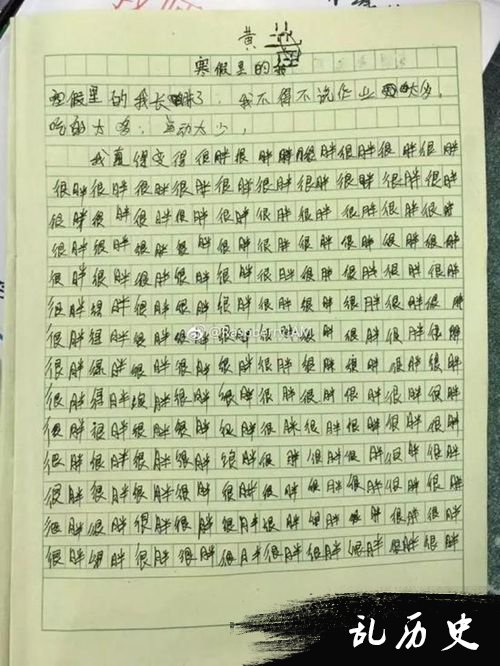 黄
寒假里的我
寒假里的我长胖了，我不得不说作业太多，
吃的太多，运动太少，
我真得变得很胖很胖胖胖很胖很胖很胖很胖
很胖很胖很胖很胖很胖很胖很胖很胖很胖很胖
很胖很胖很胖很胖很胖很胖很胖很胖很胖很胖
很胖很胖很胖很胖很胖很胖很胖很胖很胖很胖
很胖很胖很胖很胖很胖很胖很胖很胖很胖很胖
很胖很胖很胖很胖很胖很胖很胖很胖很胖很胖
很胖很胖很胖很胖很胖很胖很胖很胖很胖很胖
很胖很胖很胖很胖很胖很胖很胖很胖很胖很胖
很胖很胖很胖很胖很胖很胖很胖很胖很胖很胖
很胖很胖很胖很胖很胖很胖很胖很胖很胖很胖
很胖很胖很胖很胖很胖很胖很胖很胖很胖很胖
很胖很胖很胖很胖很胖很胖很胖很胖很胖很胖
很胖很胖很胖很胖很胖很胖很胖很胖很胖很胖
很胖很胖很胖很胖很胖很胖很胖很胖很胖很胖
乱历史